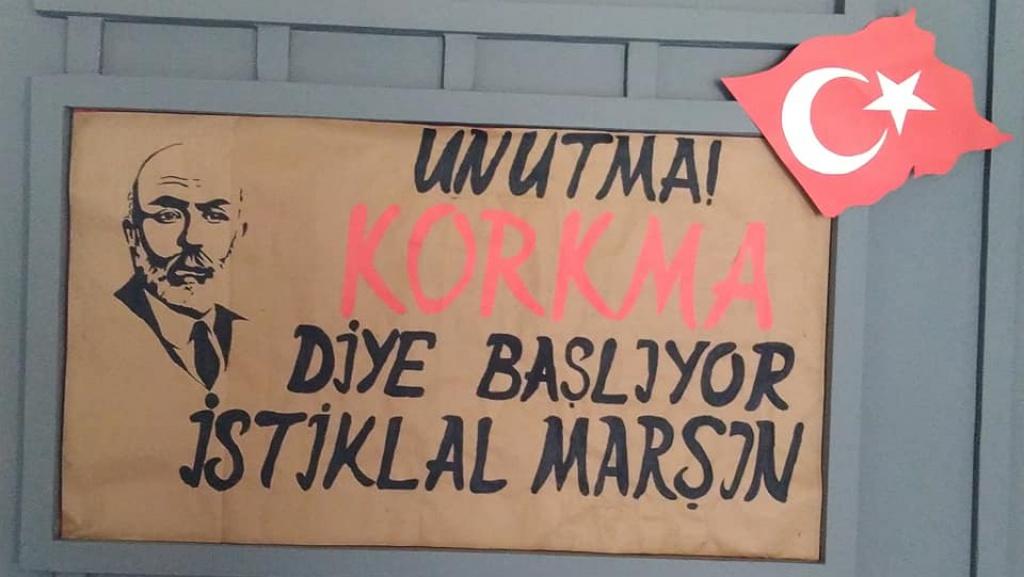 UNUTMA!
KORKMA
DİYE BAŞLIYOR
İSTİKLAL MARŞIN